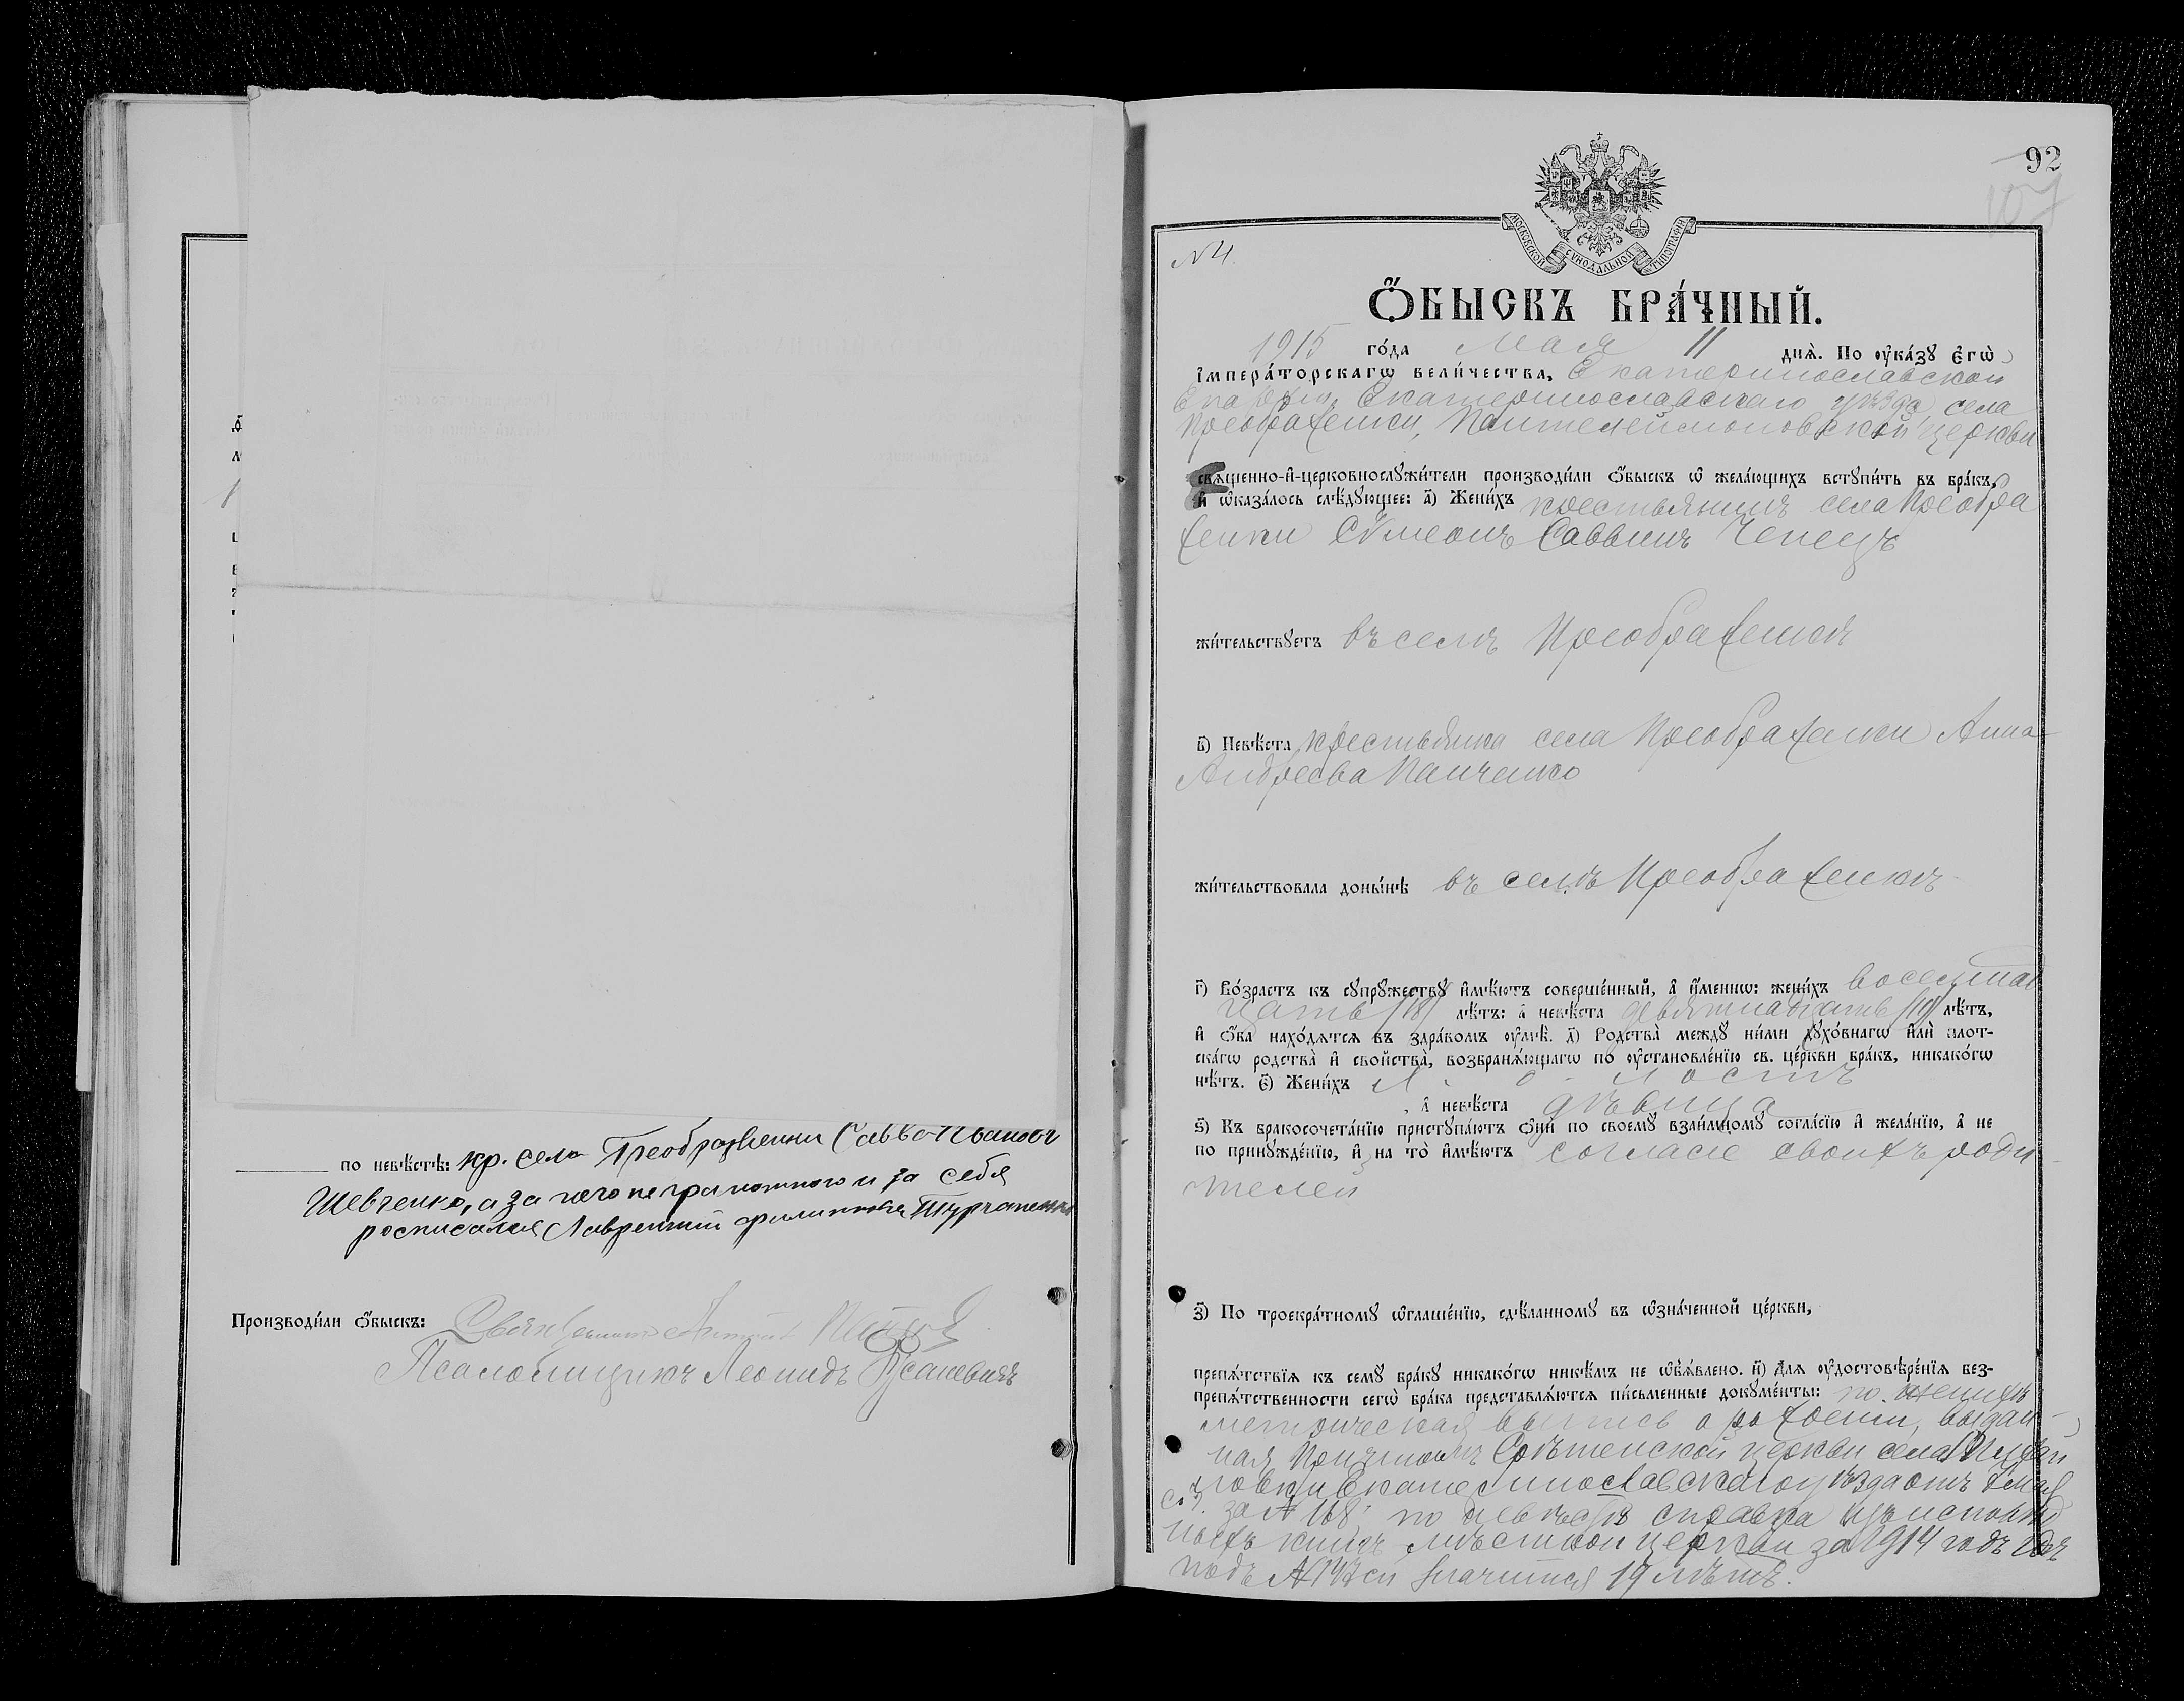 по невѣ́стѣ: кр. села Преображенки Савва Ивановъ
Шевченко, а за него неграмотного и за себя
росписался Лаврентий Филипповъ
Производи́ли ѻ҆́быскъ:
Псаломщикъ Леонидъ
92
107
МОСКОВСКОЙ СѴНОДАЛЬНОЙ ТИПОГРАФІИ
N 4.
Ѻ҆́БЫСКЪ БРА́ЧНЫЙ.
1915 го́да Мая 11 днѧ̀. По ᲂу҆ка́зꙋ Є҆гѡ̀
І҆мпера́торскагѡ вели́чества, Екатеринославской
Епархіи, Екатеринославскаго уѣзда, села
Преображенки, Пантелеимоновской церкви
свѧще́нно-и҆-церковнослꙋжи́тели производи́ли ѻ҆́быскъ ѡ҆ жела́ющихъ встꙋпи́ть въ бра́къ,
и҆ ѡ҆каза́лось слѣ́дꙋющее: а҃) Жени́хъ крестьянинъ села Преобра
женки Сѵмеонъ Саввинъ Чепецъ
жи́тельствꙋетъ въ селѣ Преображенкѣ
в҃) Невѣ́ста крестьянка села Преображенки Анна
Андреева Панченко
жи́тельствовала доны́нѣ въ селѣ Преображенкѣ
г҃) Во́зрастъ къ сꙋпрꙋ́жествꙋ и҆мѣ́ютъ соверше́нный, а҆ и҆́менно: жени́хъ восемнад
цать /18/ лѣ́тъ: а҆ невѣ́ста девятнадцать /19/ лѣ́тъ,
и҆ ѻ҆́ба нахо́дѧтсѧ въ здра́вомъ ᲂу҆мѣ̀. д҃) Родства̀ междꙋ̀ ни́ми дꙋхо́внагѡ и҆лѝ плот-
ска́гѡ родства̀ и҆ свойства̀, возбранѧ́ющагѡ по ᲂу҆становле́нїю св. це́ркви бра́къ, никако́гѡ
нѣ́тъ. є҃) Жени́хъ холостъ
, а҆ невѣ́ста дѣвица
ѕ҃) Къ бракосочета́нїю пристꙋпа́ютъ ѻ҆нѝ по своемꙋ̀ взаи́мномꙋ согла́сїю и҆ жела́нїю, а҆ не
по принꙋжде́нїю, и҆ на то̀ и҆мѣ́ютъ согласіе своихъ роди
телей
з҃) По троекра́тномꙋ ѡ҆глаше́нїю, сдѣ́ланномꙋ въ ѡ҆зна́ченной це́ркви,
препѧ́тствїѧ къ семꙋ̀ бра́кꙋ никако́гѡ никѣ́мъ не ѡ҆б̾ѧ́влено. и҃) Длѧ ᲂу҆достовѣре́нїѧ без-
препѧ́тственности сегѡ̀ бра́ка представлѧ́ютсѧ пи́сьменные докꙋме́нты: по женихѣ
метрическая выпись о рожденіи, выдан
ная Причтомъ Срѣтенской церкви села
Екатеринославскаго уѣзда отъ 7 Мая
с. г. за № 168; по невѣстѣ справка изъ исповѣд
ныхъ книгъ мѣстной церкви за 1914 годъ гдѣ
подъ № ей значится 19 лѣтъ.